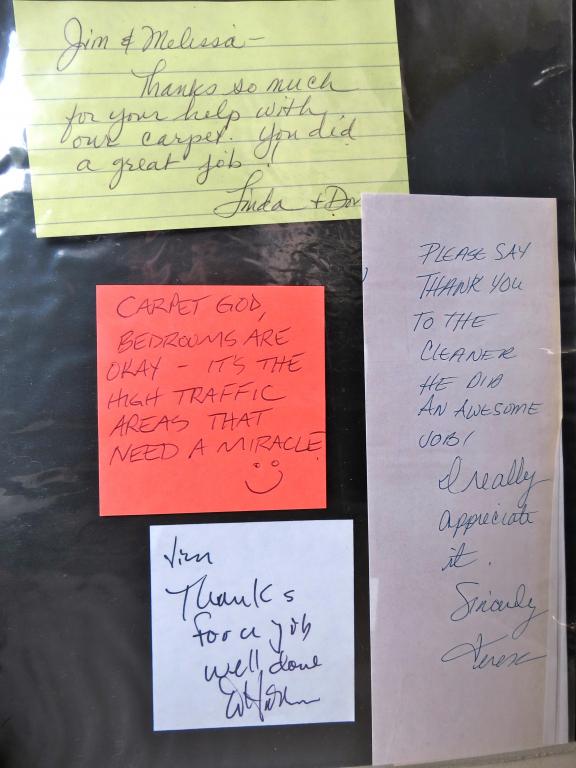 Jim & Melissa -
Thanks so much
for your help with
our carpet. You did
a great job!
Linda + Don
CARPET GOD,
BEDROOMS ARE
OKAY - IT'S THE
HIGH TRAFFIC
AREAS THAT
NEED A MIRACLE
Jim
Thanks
for a job
well done
PLEASE SAY
THANK YOU
TO THE
CLEANER
HE DID
AN AWESOME
JOB!
I really
appreciate
it.
Sincerely
Teresa